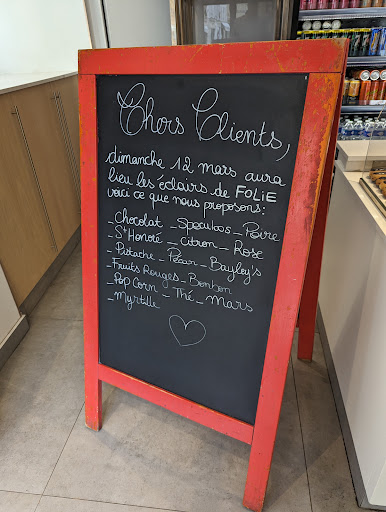 Chers Clients,
dimanche 12 mars aura
lieu les éclairs de FOLIE
voici ce que nous proposons:
_Chocolat _Speculoos _Poire
_St Honoré _citron _ Rose
_Pistache _Pécan _Bayley's
_Fruits Rouges _Bonbon
_Pop Corn _Thé _ Mars
_Myrtille